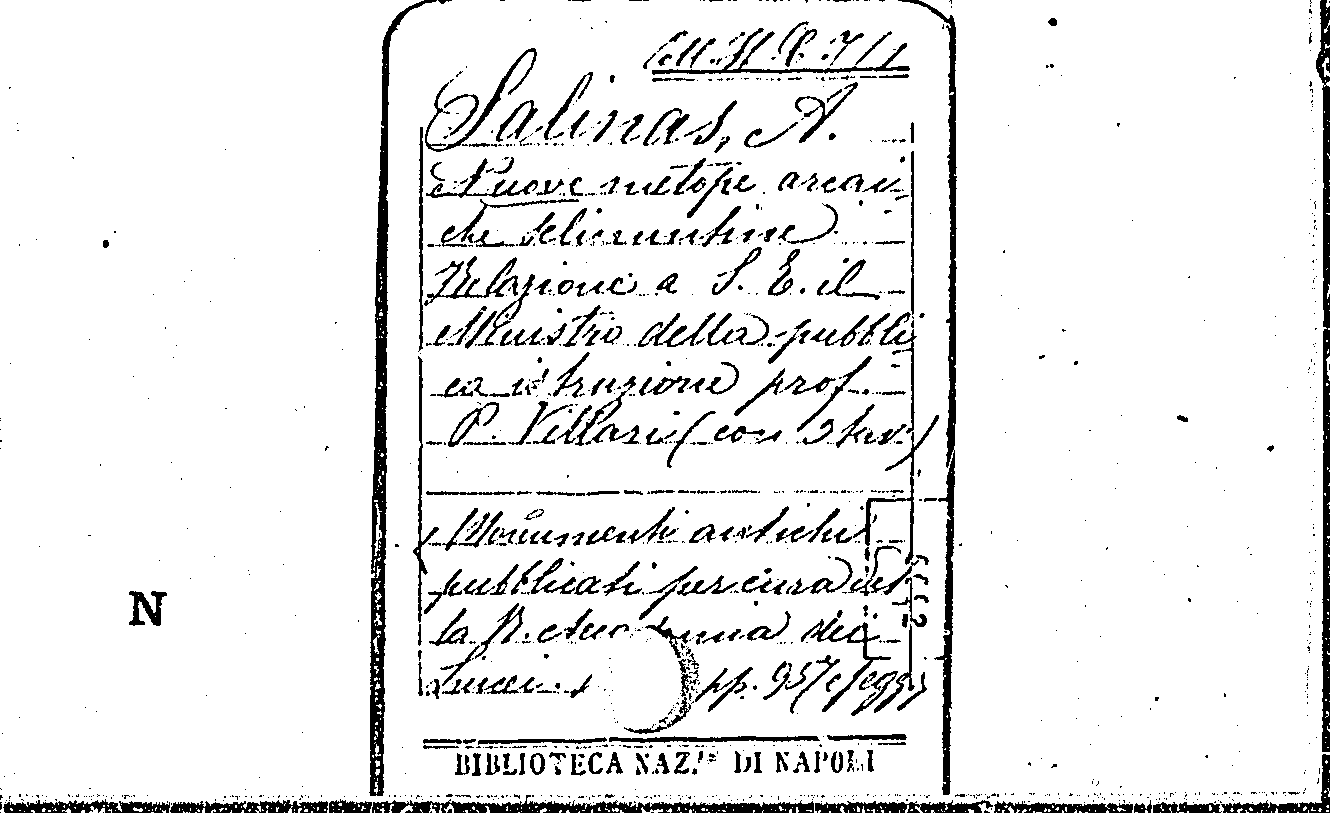 Salinas, A.
Nuove metope arcai
che selinuntine
Relazione a S. E. il
Ministro della pubbli
ca istruzione prof.
P. Villari (con 3 tav.)
Monumenti antichi
pubblicati per cura del
la R. Accademia dei
Lincei. pp. 957 e segg.
N
BIBLIOTECA NAZ.le DI NAPOLI